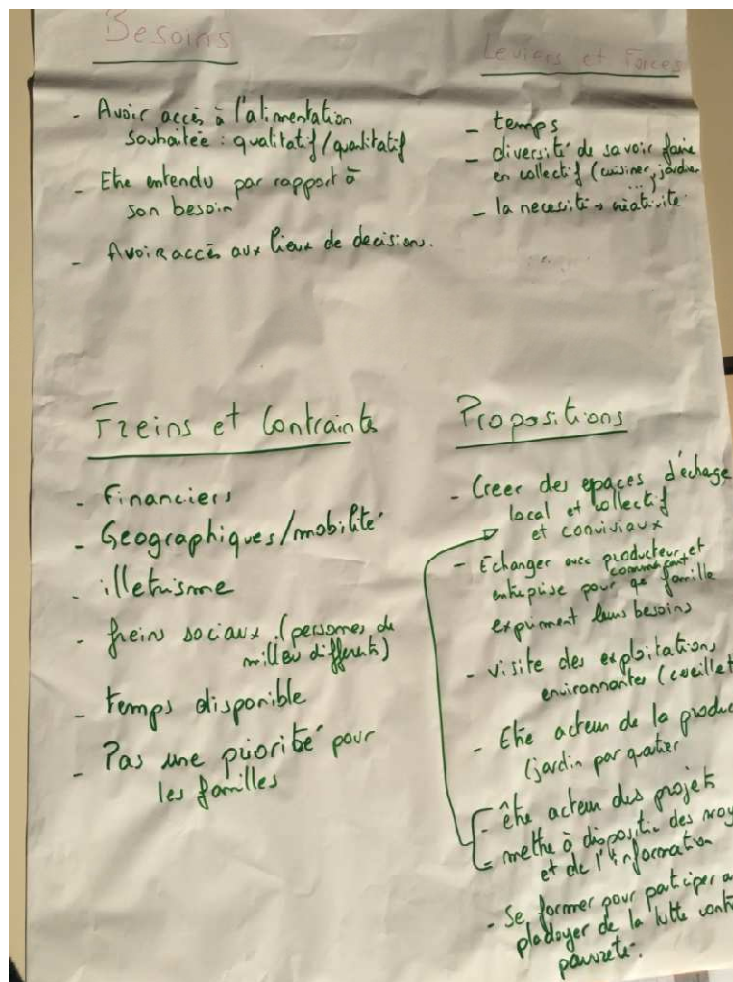 Besoins
- Avoir accès à l'alimentation
souhaitée : qualitatif/quantitatif
- Etre entendu par rapport à
son besoin
- Avoir accès aux lieux de decision.
Leviers et Forces
- temps
- diversité de savoir faire
en collectif (cuisiner, jardin
...)
- la necessité → créativité
Freins et Contraints
- Financiers
- Geographiques/mobilité
- illetrisme
- freins sociaux (personnes de
milieu différents)
- temps disponible
- Pas une priorité pour
les familles
Propositions
- Creer des epaces d'échage
local et collectif
et conviviaux
- Echanger avec producteur et
commerçant
entreprise pour que famille
expriment leurs besoins
- visite des exploitations
environnantes (cueillet
- Etre acteur de la produc
(jardin par quartier
- être acteur des projets
- mettre à disposition des moy
et de l'information
- Se former pour participer a
pladoyer de la lutte contr
pauvreté.